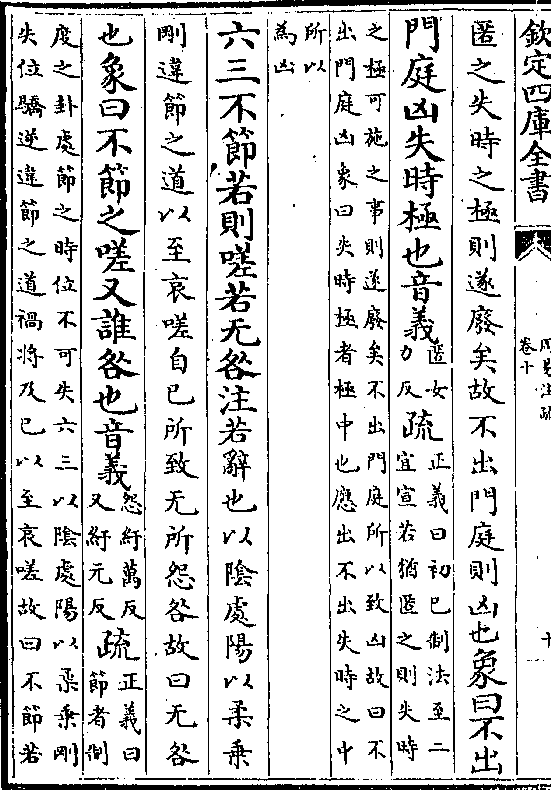 欽定四庫全書
周易注疏
卷十
十
匿之失時之極則遂廢矣故不出門庭則凶也象曰不出
門庭凶失時極也音義匿女力反疏正義曰初已制法至二宜宣若猶匿之則失時
之極可施之事則遂廢矣不出門庭所以致凶故曰不
出門庭凶象曰失時極者極中也應出不出失時之中
所以
為凶
六三不節若則嗟若无咎注若辭也以陰處陽以柔乗
剛違節之道以至哀嗟自已所致无所怨咎故曰无咎
也象曰不節之嗟又誰咎也音義怨紆萬反又紆元反疏正義曰節者制
度之卦處節之時位不可失六三以陰處陽以柔乗剛
失位驕逆違節之道禍將及已以至哀嗟故曰不節若